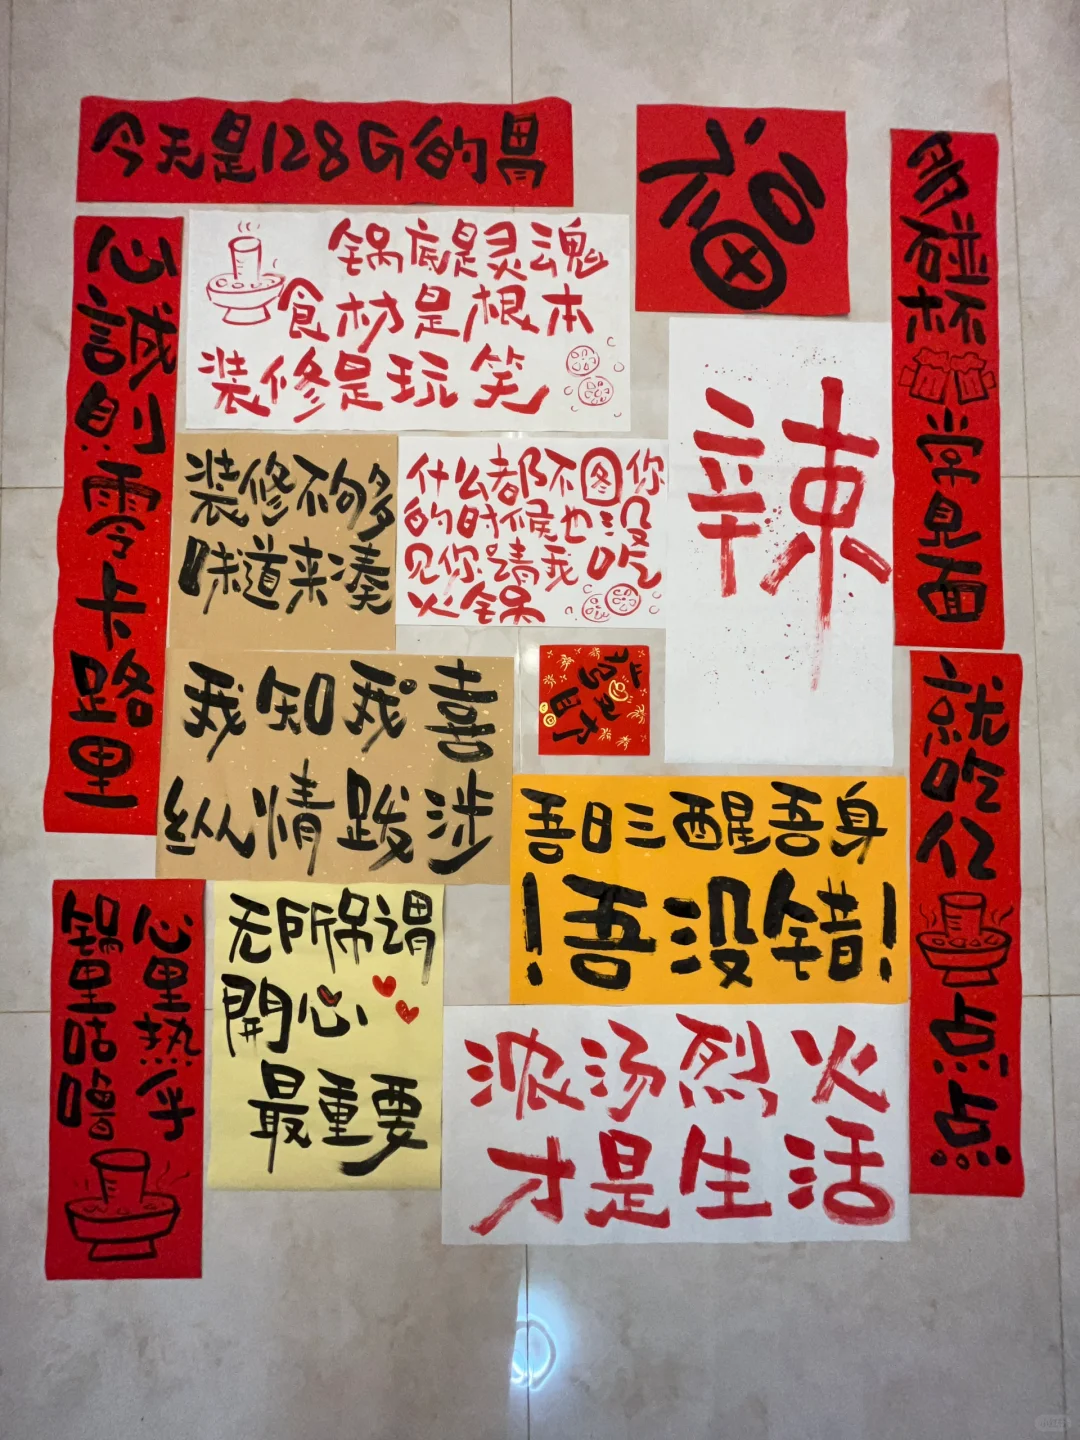 今天是128G的胃
福
多碰杯
常見面
心誠則零卡路里
锅底是灵魂
食材是根本
装修是玩笑
辣
装修不够
味道来凑
什么都不图你
的时候也没
见你请我吃
火锅
我知我喜
纵情跋涉
就吃亿
点点
吾日三醒吾身
!吾没错!
心里热乎
锅里咕噜
无所吊谓
開心
最重要
浓汤烈火
才是生活